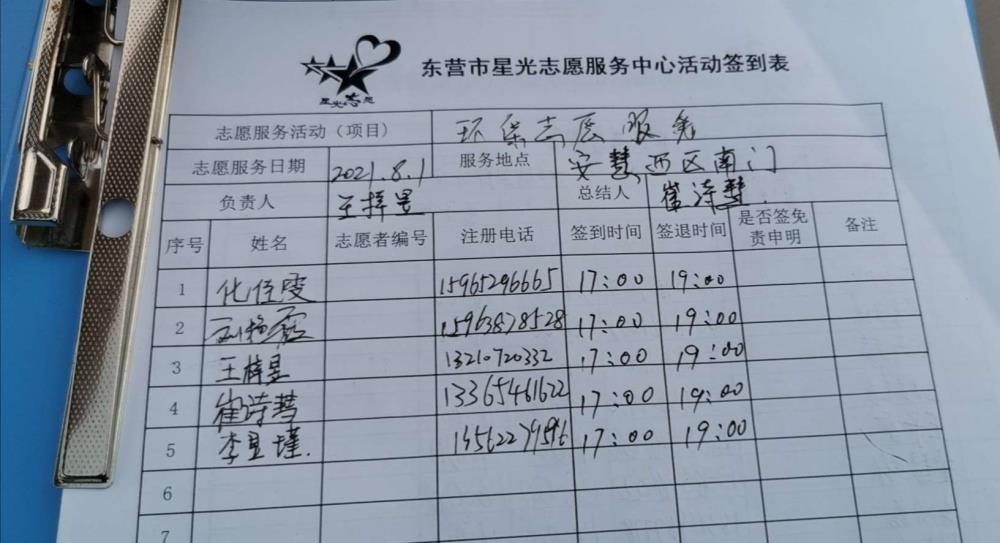 星光志愿
东营市星光志愿服务中心活动签到表
志愿服务活动（项目） 环保志愿服务
志愿服务日期 2021.8.1 服务地点 安慧西区南门
负责人 王梓昱 总结人 崔诗慧
序号 姓名 志愿者编号 注册电话 签到时间 签退时间 是否签免责申明 备注
1 15965296665 17:00 19:00
2 15963878528 17:00 19:00
3 王梓昱 13210720332 17:00 19:00
4 崔诗慧 13365461622 17:00 19:00
5 李昱瑾. 17:00 19:00
6
7